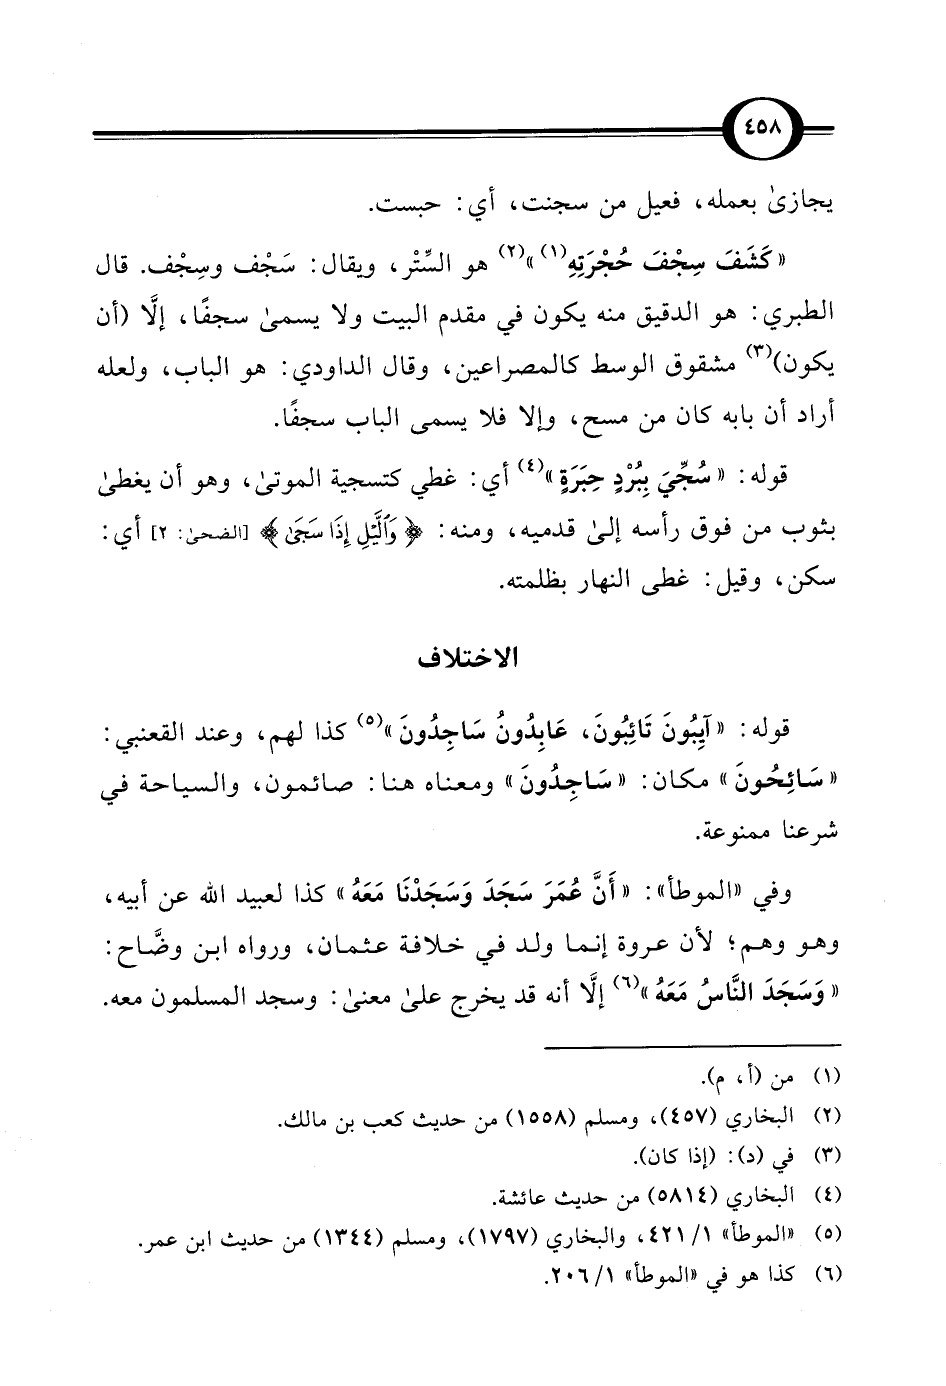 ٤٥٨
يجازىٰ بعمله، فعيل من سجنت، أي: حبست.
«كَشَفَ سِجْفَ حُجْرَتِهِ(١)»(٢) هو السِّتْر، ويقال: سَجْف وسِجْف. قال
الطبري: هو الدقيق منه يكون في مقدم البيت ولا يسمىٰ سجفًا، إلَّا (أن
يكون)(٣) مشقوق الوسط كالمصراعين، وقال الداودي: هو الباب، ولعله
أراد أن بابه كان من مسح، وإلا فلا يسمى الباب سجفًا.
قوله: «سُجِّيَ بِبُرْدٍ حِبَرَةٍ»(٤) أي: غطي كتسجية الموتىٰ، وهو أن يغطىٰ
بثوب من فوق رأسه إلىٰ قدميه، ومنه: ﴿وَٱلَّيْلِ إِذَا سَجَىٰ﴾ [الضحىٰ: ٢] أي:
سكن، وقيل: غطى النهار بظلمته.
الاختلاف
قوله: «آيِبُونَ تَائِبُونَ، عَابِدُونُ سَاجِدُونَ»(٥) كذا لهم، وعند القعنبي:
«سَائِحُونَ» مكان: «سَاجِدُونَ» ومعناه هنا: صائمون، والسياحة في
شرعنا ممنوعة.
وفي «الموطأ»: «أَنَّ عُمَرَ سَجَدَ وَسَجَدْنَا مَعَهُ» كذا لعبيد الله عن أبيه،
وهو وهم؛ لأن عروة إنما ولد في خلافة عثمان، ورواه ابن وضَّاح:
«وَسَجَدَ النَّاسُ مَعَهُ»(٦) إلَّا أنه قد يخرج علىٰ معنىٰ: وسجد المسلمون معه.
(١) من (أ، م).
(٢) البخاري (٤٥٧)، ومسلم (١٥٥٨) من حديث كعب بن مالك.
(٣) في (د): (إذا كان).
(٤) البخاري (٥٨١٤) من حديث عائشة.
(٥) «الموطأ» ١/ ٤٢١، والبخاري (١٧٩٧)، ومسلم (١٣٤٤) من حديث ابن عمر.
(٦) كذا هو في «الموطأ» ١/ ٢٠٦.